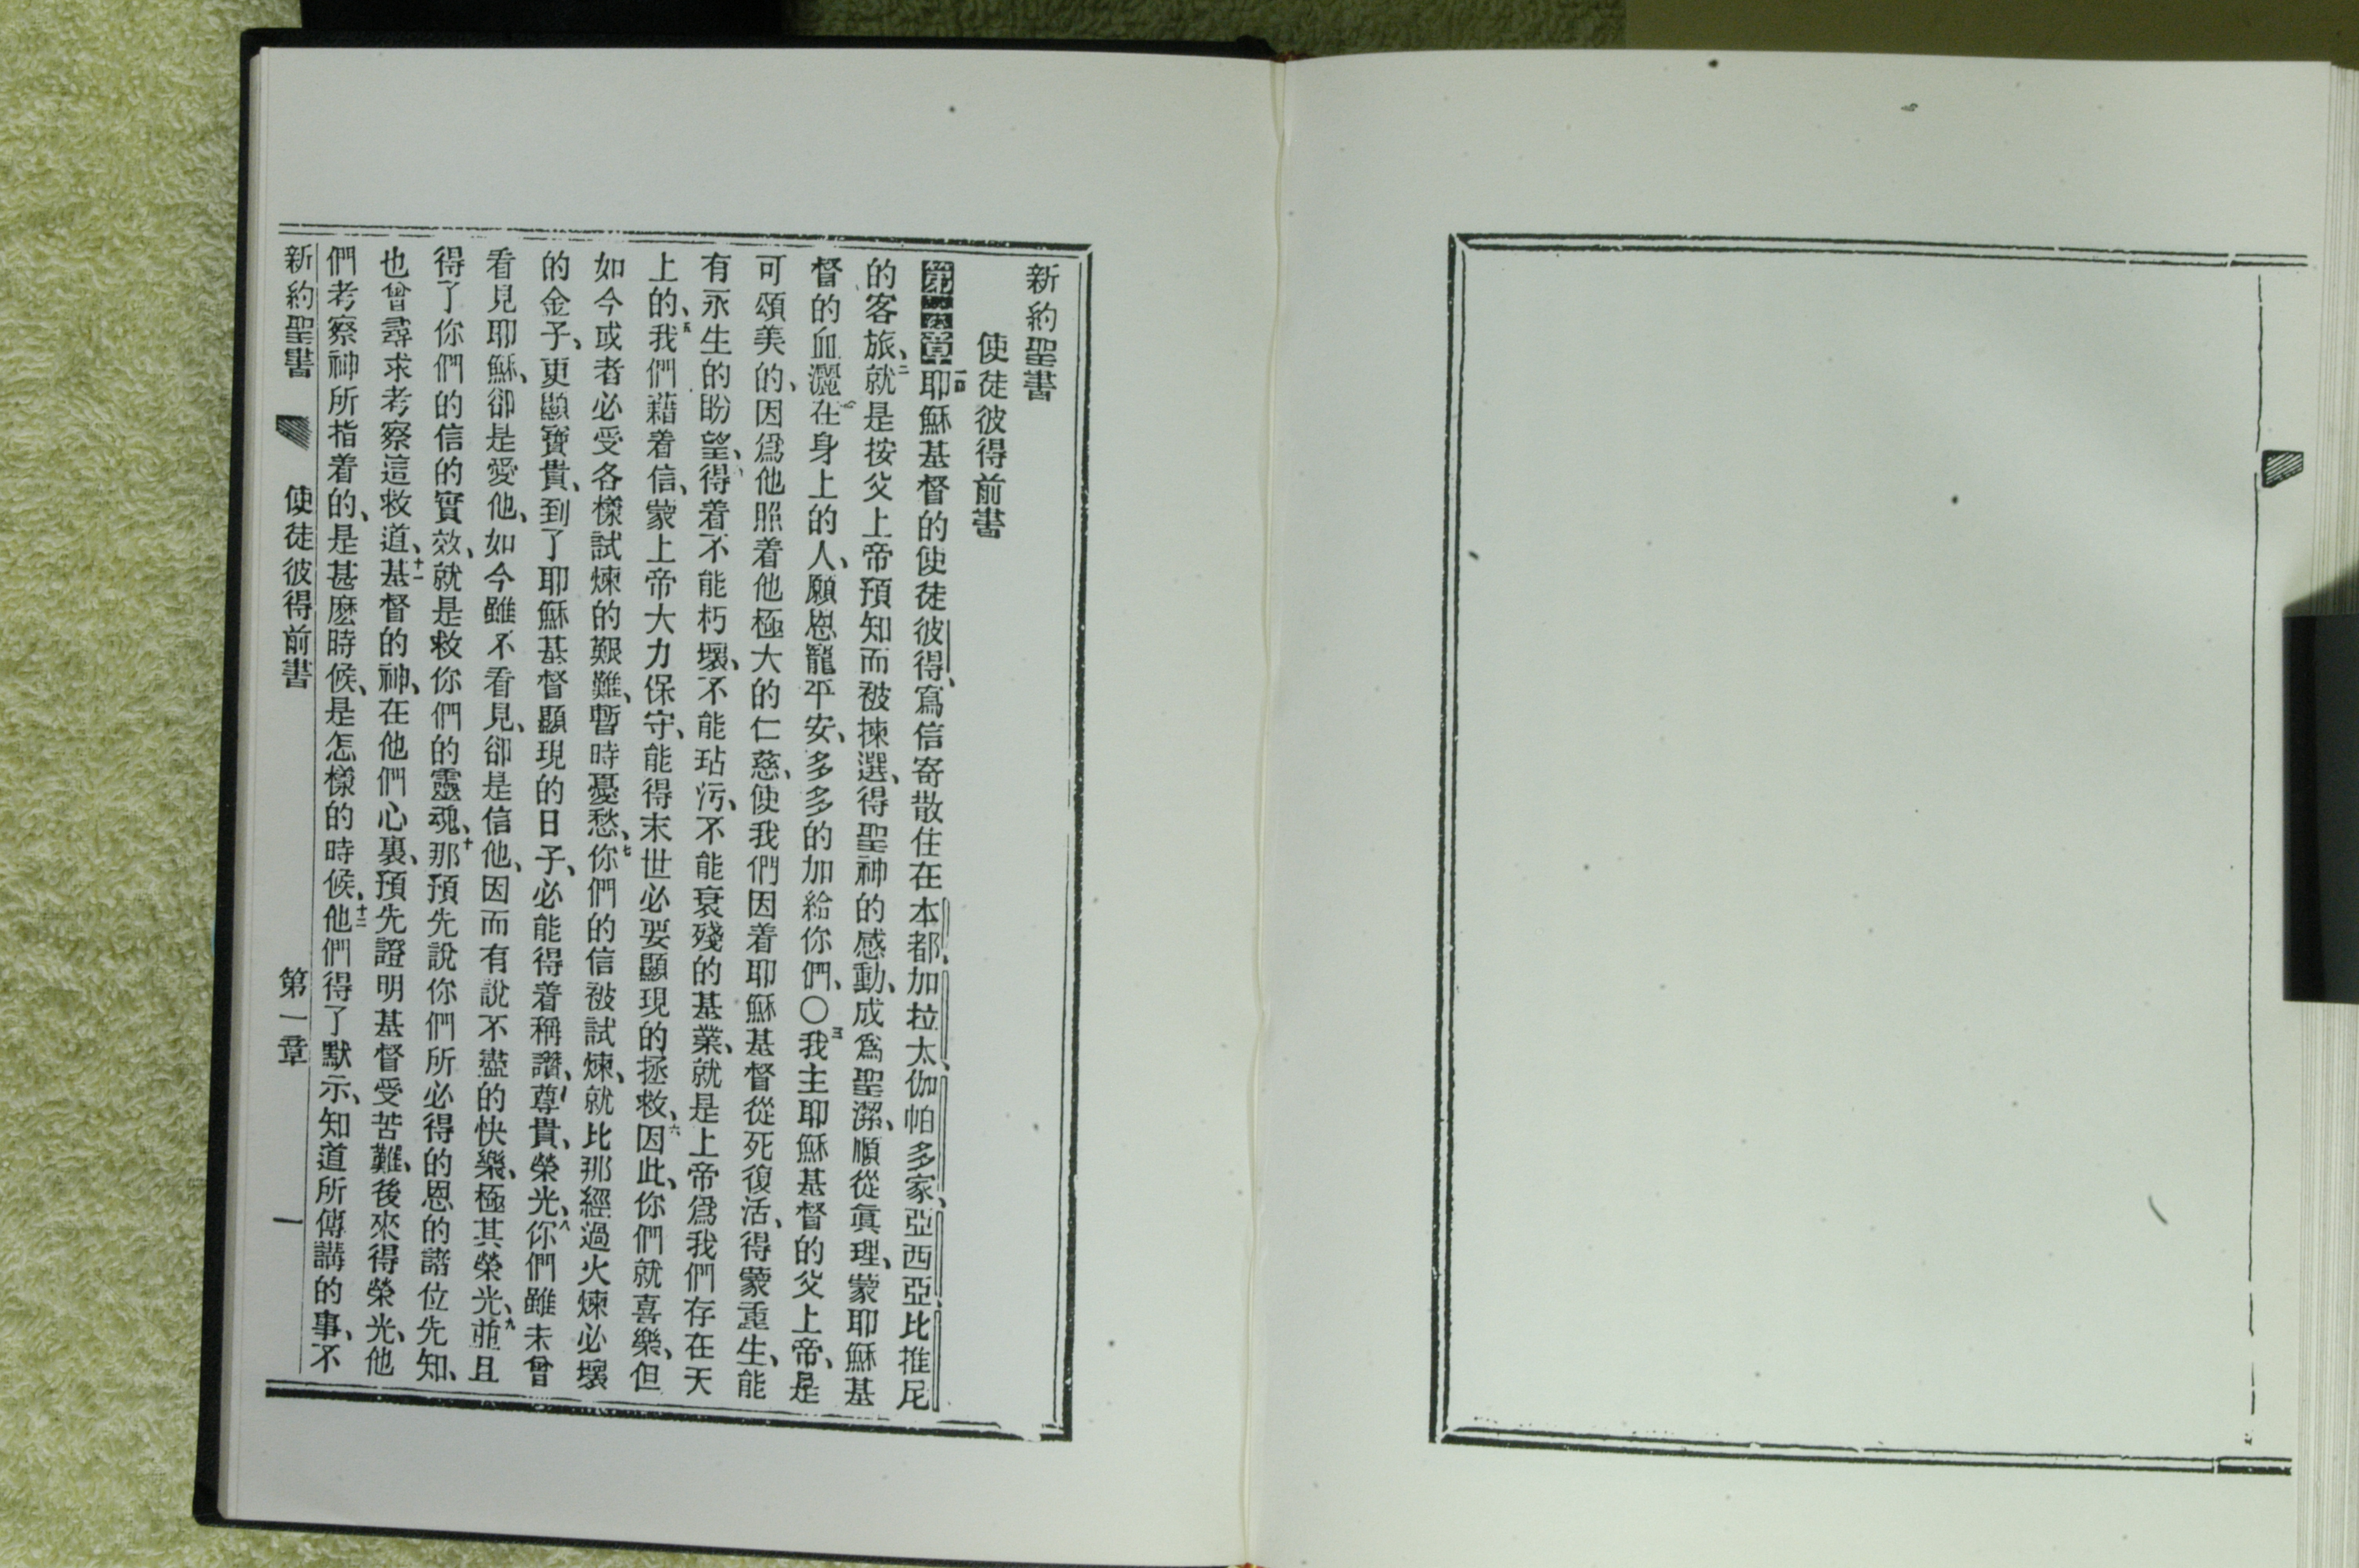 新約聖書
使徒彼得前書
第一章一耶穌基督的使徒彼得、寫信寄散住在本都、加拉太、伽帕多家、亞西亞、比推尼
的客旅、二就是按父上帝預知而被揀選、得聖神的感動、成爲聖潔、順從眞理、蒙耶穌基
督的血灑在身上的人、願恩寵平安、多多的加給你們、〇三我主耶穌基督的父上帝、是
可頌美的、因爲他照着他極大的仁慈、使我們因着耶穌基督從死復活、得蒙重生、能
有永生的盼望、得着不能朽壞、不能玷污、不能衰殘的基業、就是上帝爲我們存在天
上的、五我們藉着信、蒙上帝大力保守、能得末世必要顯現的拯救、六因此、你們就喜樂、但
如今或者必受各樣試煉的艱難、暫時憂愁、七你們的信被試煉、就比那經過火煉必壞
的金子、更顯寶貴、到了耶穌基督顯現的日子、必能得着稱讚、尊貴、榮光、八你們雖未曾
看見耶穌、卻是愛他、如今雖不看見、卻是信他、因而有說不盡的快樂、極其榮光、九並且
得了你們的信的實效、就是救你們的靈魂、十那預先說你們所必得的恩的諸位先知、
也曾尋求考察這救道、十一基督的神、在他們心裏、預先證明基督受苦難、後來得榮光、他
們考察神所指着的、是甚麽時候、是怎樣的時候、十二他們得了默示、知道所傳講的事、不
新約聖書 使徒彼得前書 第一章 一